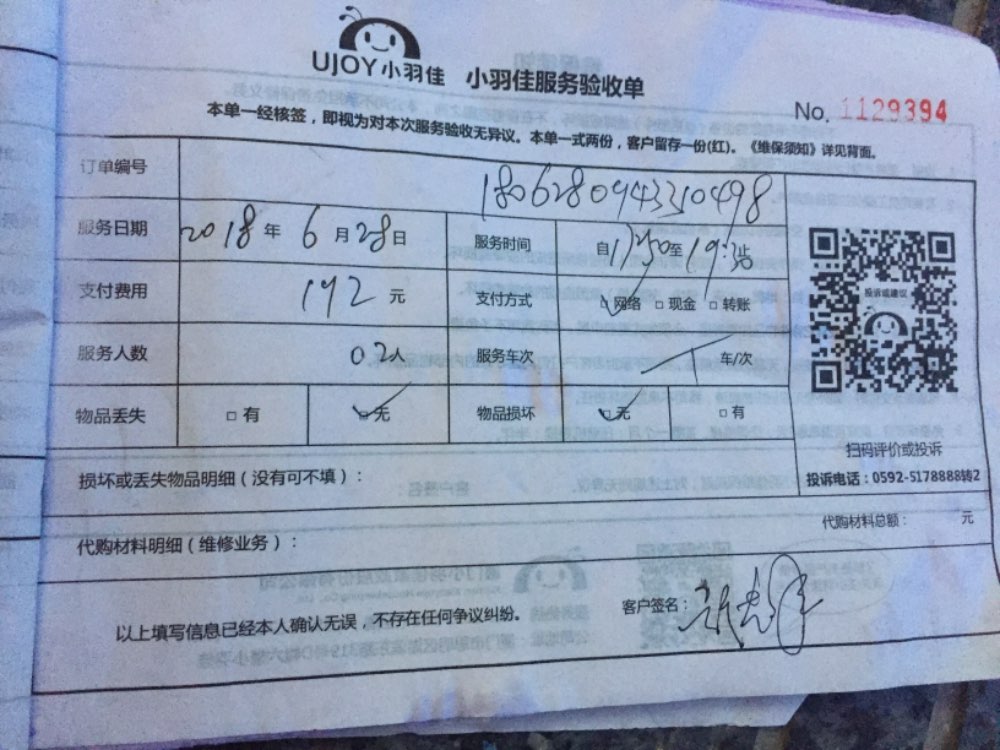 UJOY小羽佳 小羽佳服务验收单
No. 1129394
本单一经核签，即视为对本次服务验收无异议。本单一式两份，客户留存一份(红)。《维保须知》详见背面。
订单编号 180628094330498
服务日期 2018年6月28日 服务时间 自17:30至19:30止
支付费用 192元 支付方式 网络 现金 转账
投诉或建议
服务人数 02人 服务车次 车/次
物品丢失 有 无 物品损坏 无 有
扫码评价或投诉
损坏或丢失物品明细（没有可不填）：
投诉电话：0592-5178888转2
代购材料总额： 元
代购材料明细（维修业务）：
客户签名：
以上填写信息已经本人确认无误，不存在任何争议纠纷。